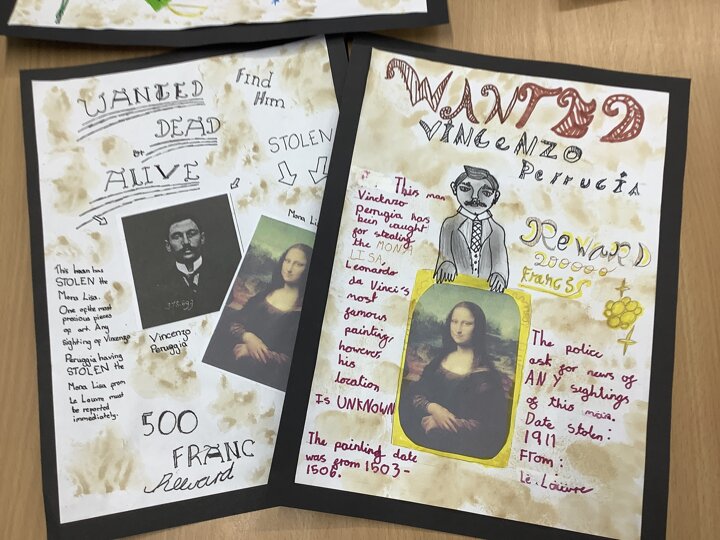 WANTED
DEAD
or
ALIVE
Find
Him
STOLEN
Mona Lis
This man has
STOLEN the
Mona Lisa.
One of the most
precious pieces
of art. Any
sighting of Vincenzo
Peruggia having
STOLEN the
Mona Lisa from
Le Louvre must
be reported
immediately.
Vincenzo
Peruggia
500
FRANC
Reward
WANTED
VINCENZO
PERRUGIA
This man
Vincenzo
perrugia has
been caught
for stealing
the MONA
LISA,
Leonardo
da Vinci's
most
famous
painting,
however
his
location
Is UNKNOWN
The painting date
was from 1503-
1506.
REWARD
200000
Francss
The police
ask for news of
ANY sightings
of this man.
Date stolen:
1911
From:
Le Louvre